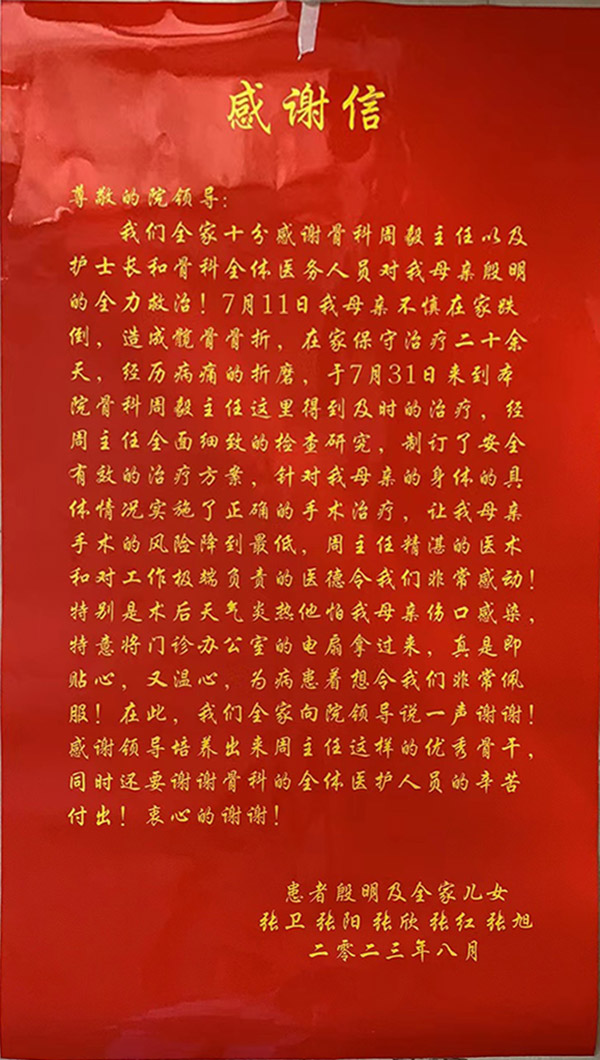 感谢信
尊敬的院领导:
我们全家十分感谢骨科周毅主任以及
护士长和骨科全体医务人员对我母亲殷明
的全力救治！7月11日我母亲不慎在家跌
倒，造成髋骨骨折，在家保守治疗二十余
天，经历病痛的折磨，于7月31日来到本
院骨科周毅主任这里得到及时的治疗，经
周主任全面细致的检查研究，制订了安全
有效的治疗方案，针对我母亲的身体的具
体情况实施了正确的手术治疗，让我母亲
手术的风险降到最低，周主任精湛的医术
和对工作极端负责的医德令我们非常感动！
特别是术后天气炎热他怕我母亲伤口感染，
特意将门诊办公室的电扇拿过来，真是即
贴心，又温心，为病患着想令我们非常佩
服！在此，我们全家向院领导说一声谢谢！
感谢领导培养出来周主任这样的优秀骨干，
同时还要谢谢骨科的全体医护人员的辛苦
付出！衷心的谢谢！
患者殷明及全家儿女
张卫 张阳 张欣 张红 张旭
二零二三年八月